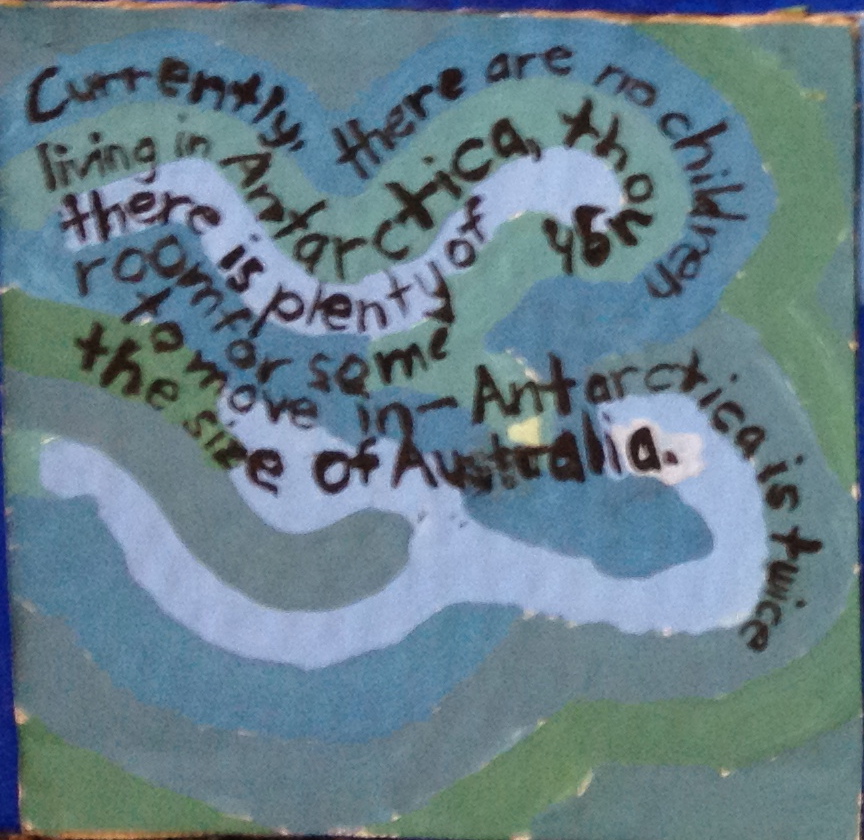 Currently, there are no children
living in Antarctica, though
there is plenty of
room for some
to move in - Antarctica is twice
the size of Australia.